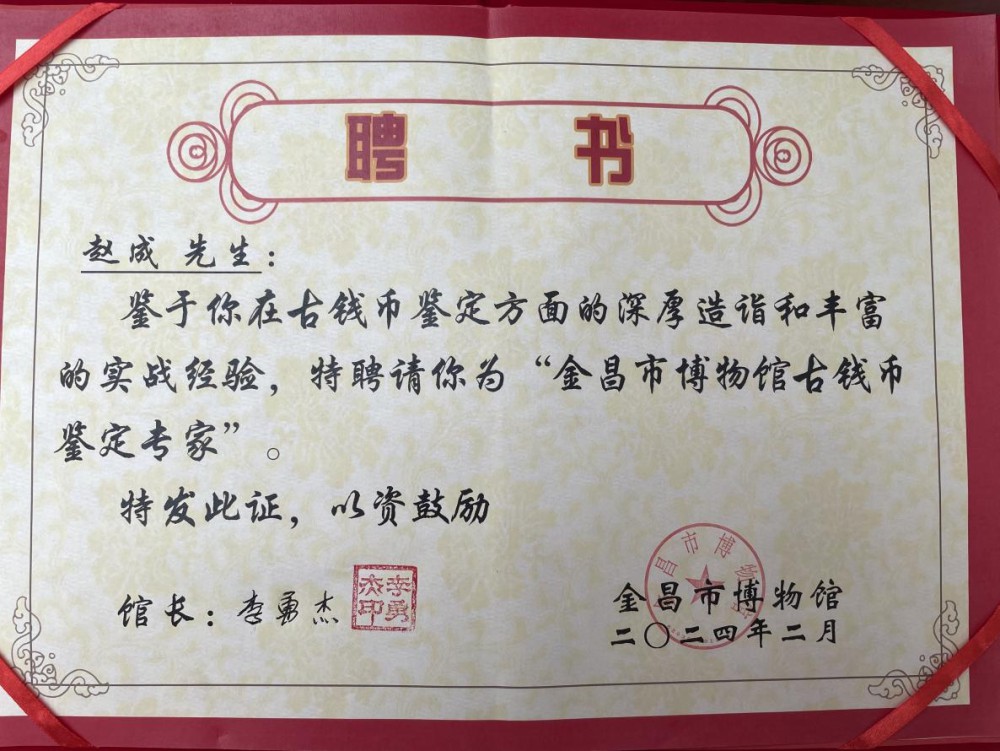 聘书
赵成 先生：
鉴于你在古钱币鉴定方面的深厚造诣和丰富
的实战经验，特聘请你为“金昌市博物馆古钱币
鉴定专家”。
特发此证，以资鼓励
馆长：李勇杰
李勇杰印
金昌市博物馆
金昌市博物馆
二〇二四年二月